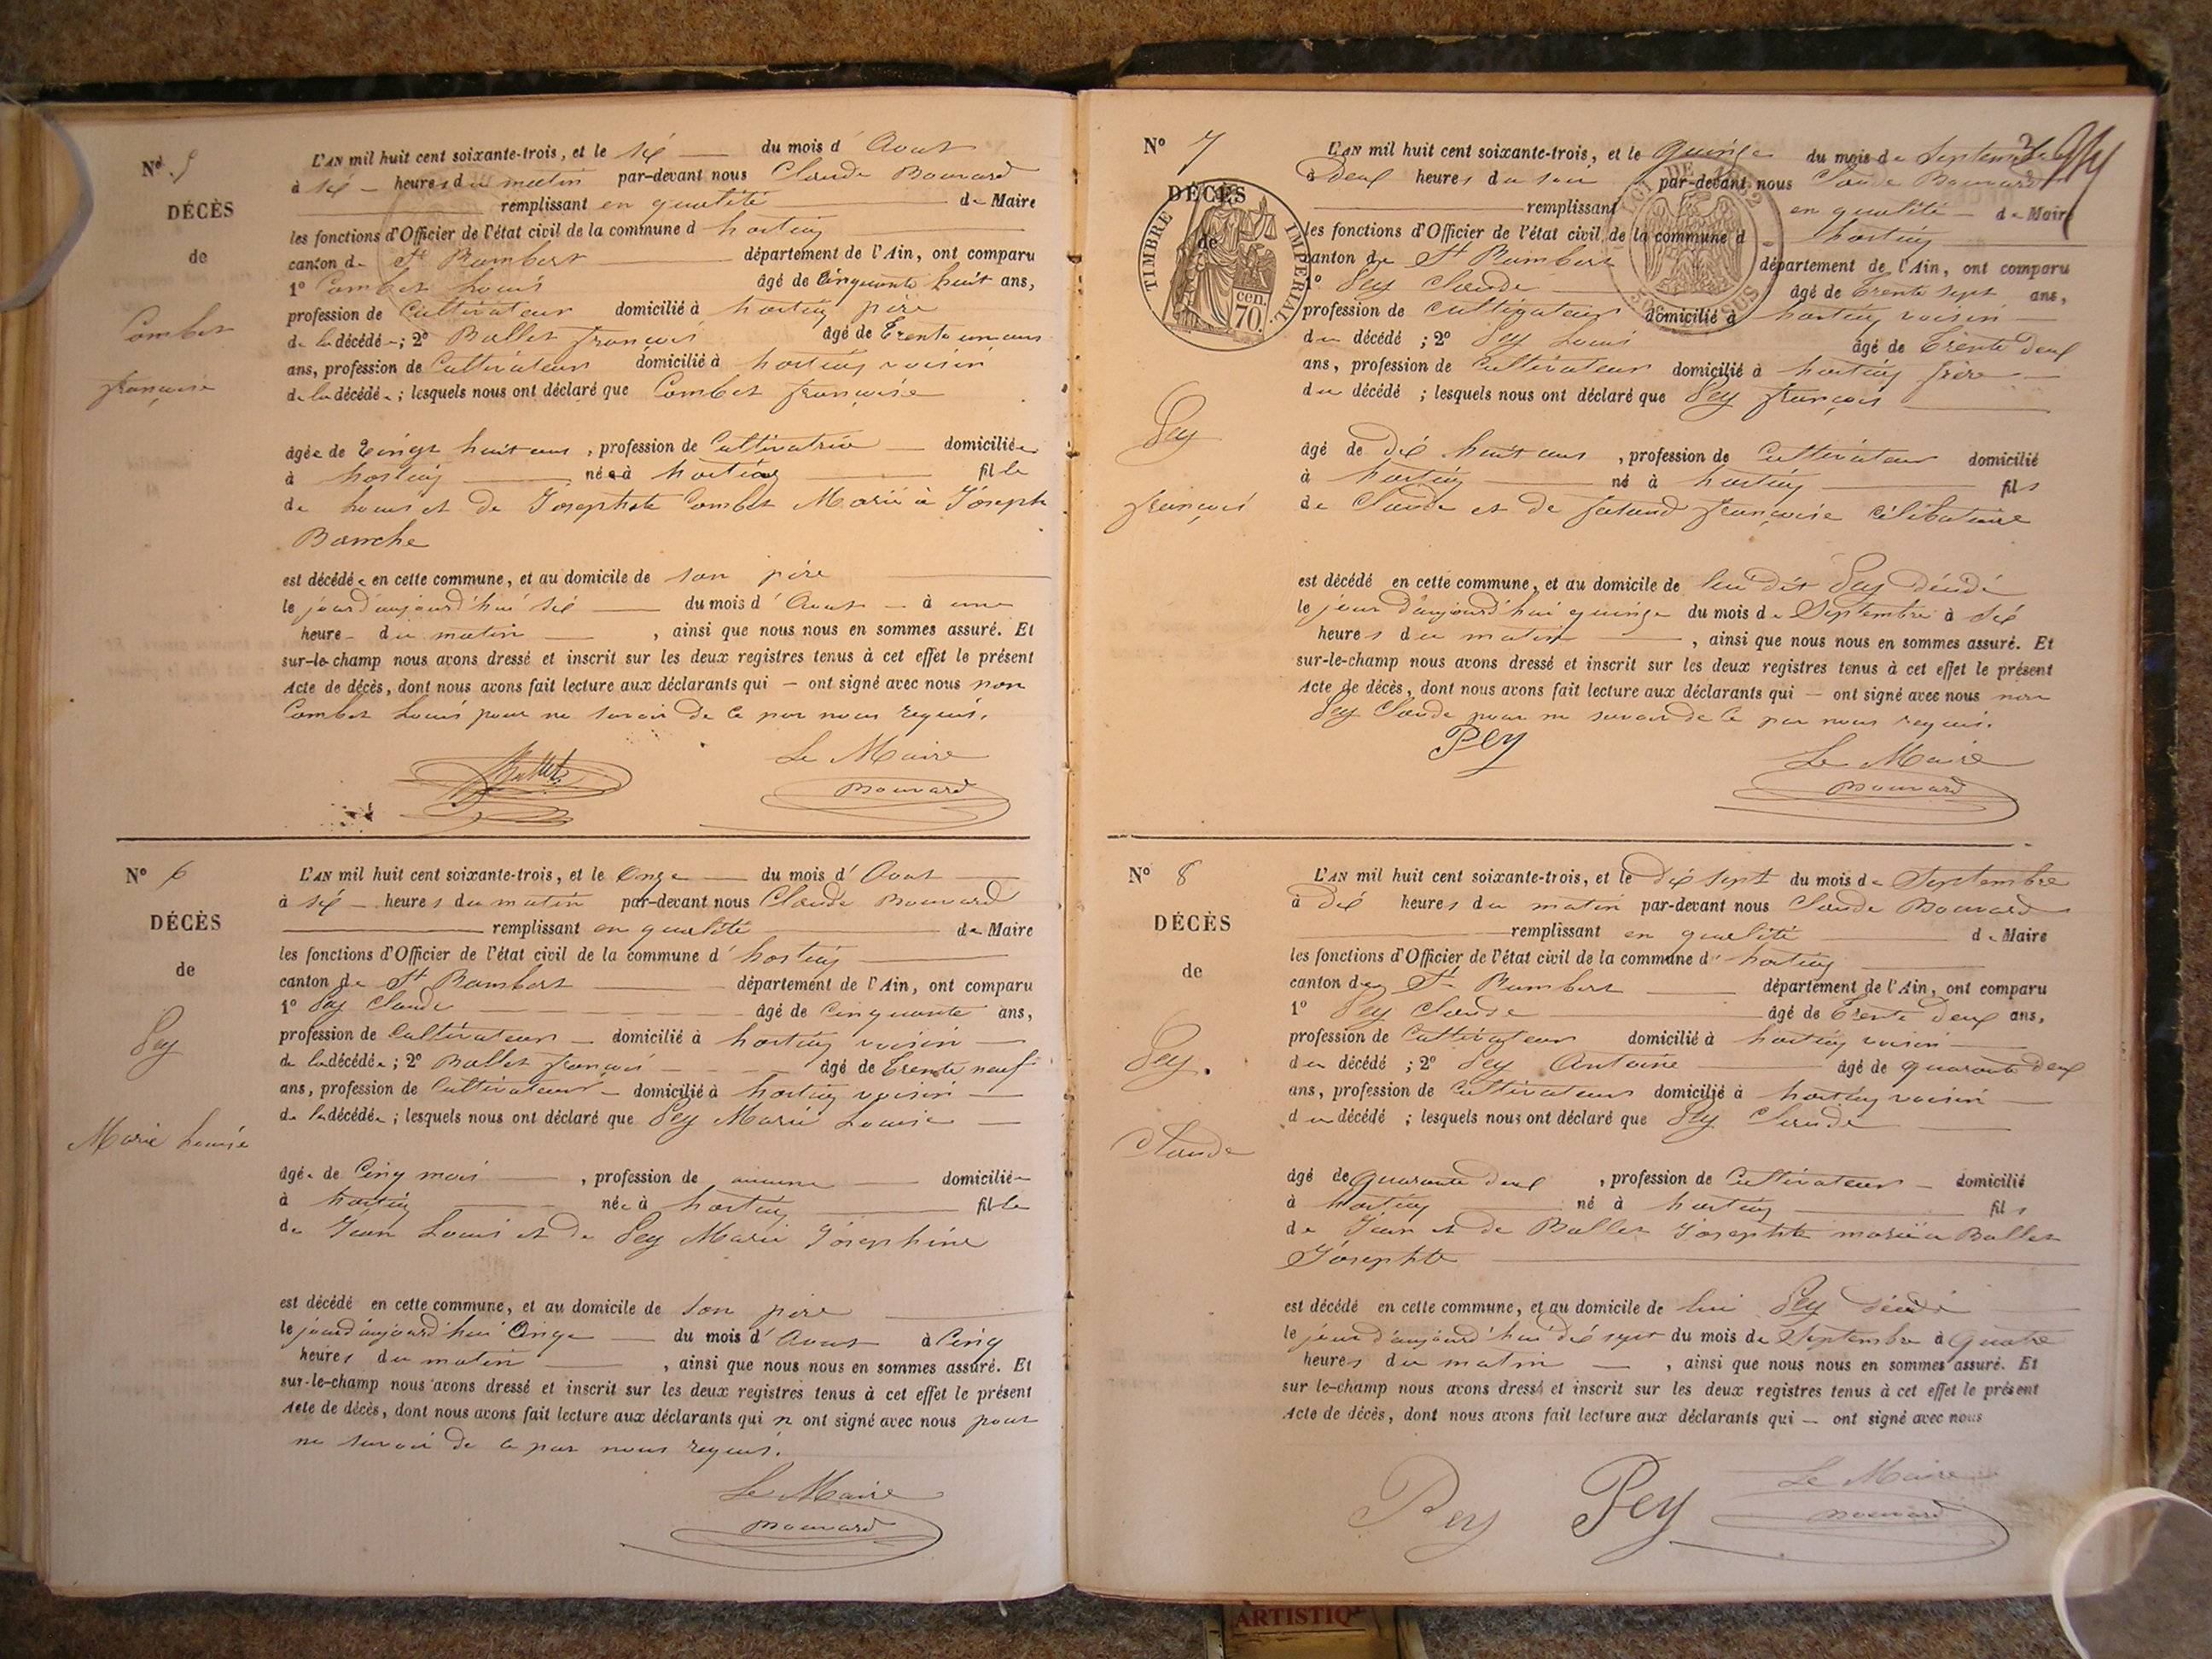 N° 5
DÉCÈS
de
Combet
françoise
L'AN mil huit cent soixante-trois, et le six du mois d' Aout
à six heures du matin par-devant nous Claude Bouvard
remplissant en qualité de Maire
les fonctions d'Officier de l'état civil de la commune d'hostiaz
canton de St Rambert département de l'Ain, ont comparu
1° Combet Louis âgé de Cinquante huit ans,
profession de Cultivateur domicilié à hostiaz père
de la décédée; 2° Ballet françois âgé de Trente un ans
ans, profession de Cultivateur domicilié à hostiaz voisin
de la décédée; lesquels nous ont déclaré que Combet françoise
âgée de Vingt huit ans, profession de Cultivatrice domiciliée
à hostiaz née à hostiaz fille
de Louis et de Josephte Combet Marié à Joseph
Bouche
est décédée en cette commune, et au domicile de son père
le jour d'aujourd'hui six du mois d'Aout à une
heure du matin, ainsi que nous nous en sommes assuré. Et
sur-le-champ nous avons dressé et inscrit sur les deux registres tenus à cet effet le présent
Acte de décès, dont nous avons fait lecture aux déclarants qui — ont signé avec nous non
Combet Louis pour ne savoir de ce par nous requis.
Ballet
Le Maire
Bouvard
N° 6
DÉCÈS
de
Pey
Marie Louise
L'AN mil huit cent soixante-trois, et le Onze du mois d'Aout
à six heures du matin par-devant nous Claude Bouvard
remplissant en qualité de Maire
les fonctions d'Officier de l'état civil de la commune d'hostiaz
canton de St Rambert département de l'Ain, ont comparu
1° Pey Claude âgé de Cinquante ans,
profession de Cultivateur domicilié à hostiaz voisin
de la décédée; 2° Ballet françois âgé de Trente neuf
ans, profession de Cultivateur domicilié à hostiaz voisin
de la décédée; lesquels nous ont déclaré que Pey Marie Louise
âgée de Cinq mois, profession de aucune domiciliée
à hostiaz née à hostiaz fille
de Jean Louis et de Pey Marie Joséphine
est décédé en cette commune, et au domicile de son père
le jour d'aujourd'hui Onze du mois d'Aout à Cinq
heures du matin, ainsi que nous nous en sommes assuré. Et
sur-le-champ nous avons dressé et inscrit sur les deux registres tenus à cet effet le présent
Acte de décès, dont nous avons fait lecture aux déclarants qui n'ont signé avec nous pour
ne savoir de ce par nous requis.
Le Maire
Bouvard
N° 7
DÉCÈS
de
TIMBRE IMPÉRIAL
70 cen.
Pey
françois
L'AN mil huit cent soixante-trois, et le Quinze du mois de Septembre
à Deux heures du soir par-devant nous Claude Bouvard
remplissant en qualité de Maire
les fonctions d'Officier de l'état civil de la commune d'hostiaz
canton de St Rambert département de l'Ain, ont comparu
1° Pey Claude âgé de Trente sept ans,
profession de Cultivateur domicilié à hostiaz voisin
du décédé; 2° Pey Louis âgé de Trente deux
ans, profession de Cultivateur domicilié à hostiaz frère
du décédé; lesquels nous ont déclaré que Pey françois
âgé de Dix huit ans, profession de Cultivateur domicilié
à hostiaz né à hostiaz fils
de Claude et de françoise célibataire
est décédé en cette commune, et au domicile de lui dit Pey décédé
le jour d'aujourd'hui quinze du mois de Septembre à six
heures du matin, ainsi que nous nous en sommes assuré. Et
sur-le-champ nous avons dressé et inscrit sur les deux registres tenus à cet effet le présent
Acte de décès, dont nous avons fait lecture aux déclarants qui — ont signé avec nous non
Pey Claude pour ne savoir de ce par nous requis.
Pey
Le Maire
Bouvard
N° 8
DÉCÈS
de
Pey.
Claude
L'AN mil huit cent soixante-trois, et le dix sept du mois de Septembre
à Dix heures du matin par-devant nous Claude Bouvard
remplissant en qualité de Maire
les fonctions d'Officier de l'état civil de la commune d'hostiaz
canton de St Rambert département de l'Ain, ont comparu
1° Pey Claude âgé de Trente deux ans,
profession de Cultivateur domicilié à hostiaz voisin
du décédé; 2° Pey Antoine âgé de quarante deux
ans, profession de Cultivateur domicilié à hostiaz voisin
du décédé; lesquels nous ont déclaré que Pey Claude
âgé de Quarante deux, profession de Cultivateur domicilié
à hostiaz né à hostiaz fils
de Jean et de Ballet Josephte marié à Ballet
Josephte
est décédé en cette commune, et au domicile de lui Pey décédé
le jour d'aujourd'hui dix sept du mois de Septembre à Quatre
heures du matin, ainsi que nous nous en sommes assuré. Et
sur le-champ nous avons dressé et inscrit sur les deux registres tenus à cet effet le présent
Acte de décès, dont nous avons fait lecture aux déclarants qui — ont signé avec nous
Pey Pey
Le Maire
Bouvard
ARTISTIQ